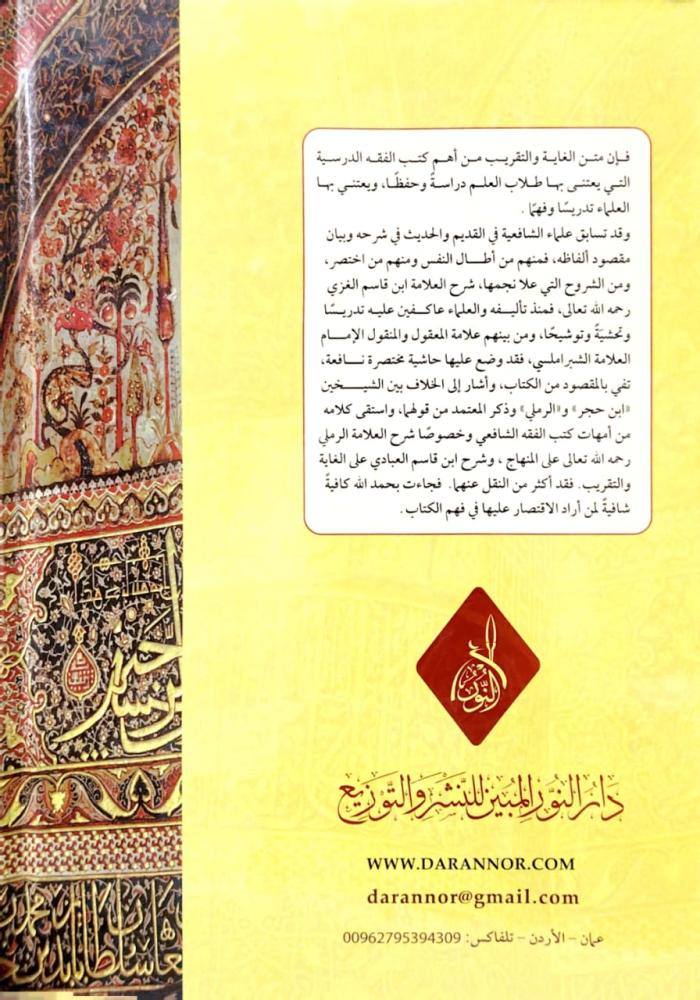 فإن متن الغاية والتقريب من أهم كتب الفقه الدرسية
التي يعتنى بها طلاب العلم دراسةً وحفظًا، ويعتني بها
العلماء تدريسًا وفهمًا .
وقد تسابق علماء الشافعية في القديم والحديث في شرحه وبيان
مقصود ألفاظه، فمنهم من أطال النفس ومنهم من اختصر،
ومن الشروح التي علا نجمها، شرح العلامة ابن قاسم الغزي
رحمه الله تعالى، فمنذ تأليفه والعلماء عاكفين عليه تدريسًا
وتحشيةً وتوشيحًا، ومن بينهم علامة المعقول والمنقول الإمام
العلامة الشبراملسي، فقد وضع عليها حاشية مختصرة نافعة،
تفي بالمقصود من الكتاب، وأشار إلى الخلاف بين الشيخين
«ابن حجر» و«الرملي» وذكر المعتمد من قولهما، واستقى كلامه
من أمهات كتب الفقه الشافعي وخصوصًا شرح العلامة الرملي
رحمه الله تعالى على المنهاج، وشرح ابن قاسم العبادي على الغاية
والتقريب. فقد أكثر من النقل عنهما. فجاءت بحمد الله كافيةً
شافيةً لمن أراد الاقتصار عليها في فهم الكتاب .
النور
دار النور المبين للنشر والتوزيع
WWW.DARANNOR.COM
darannor@gmail.com
عمان - الأردن - تلفاكس: 00962795394309